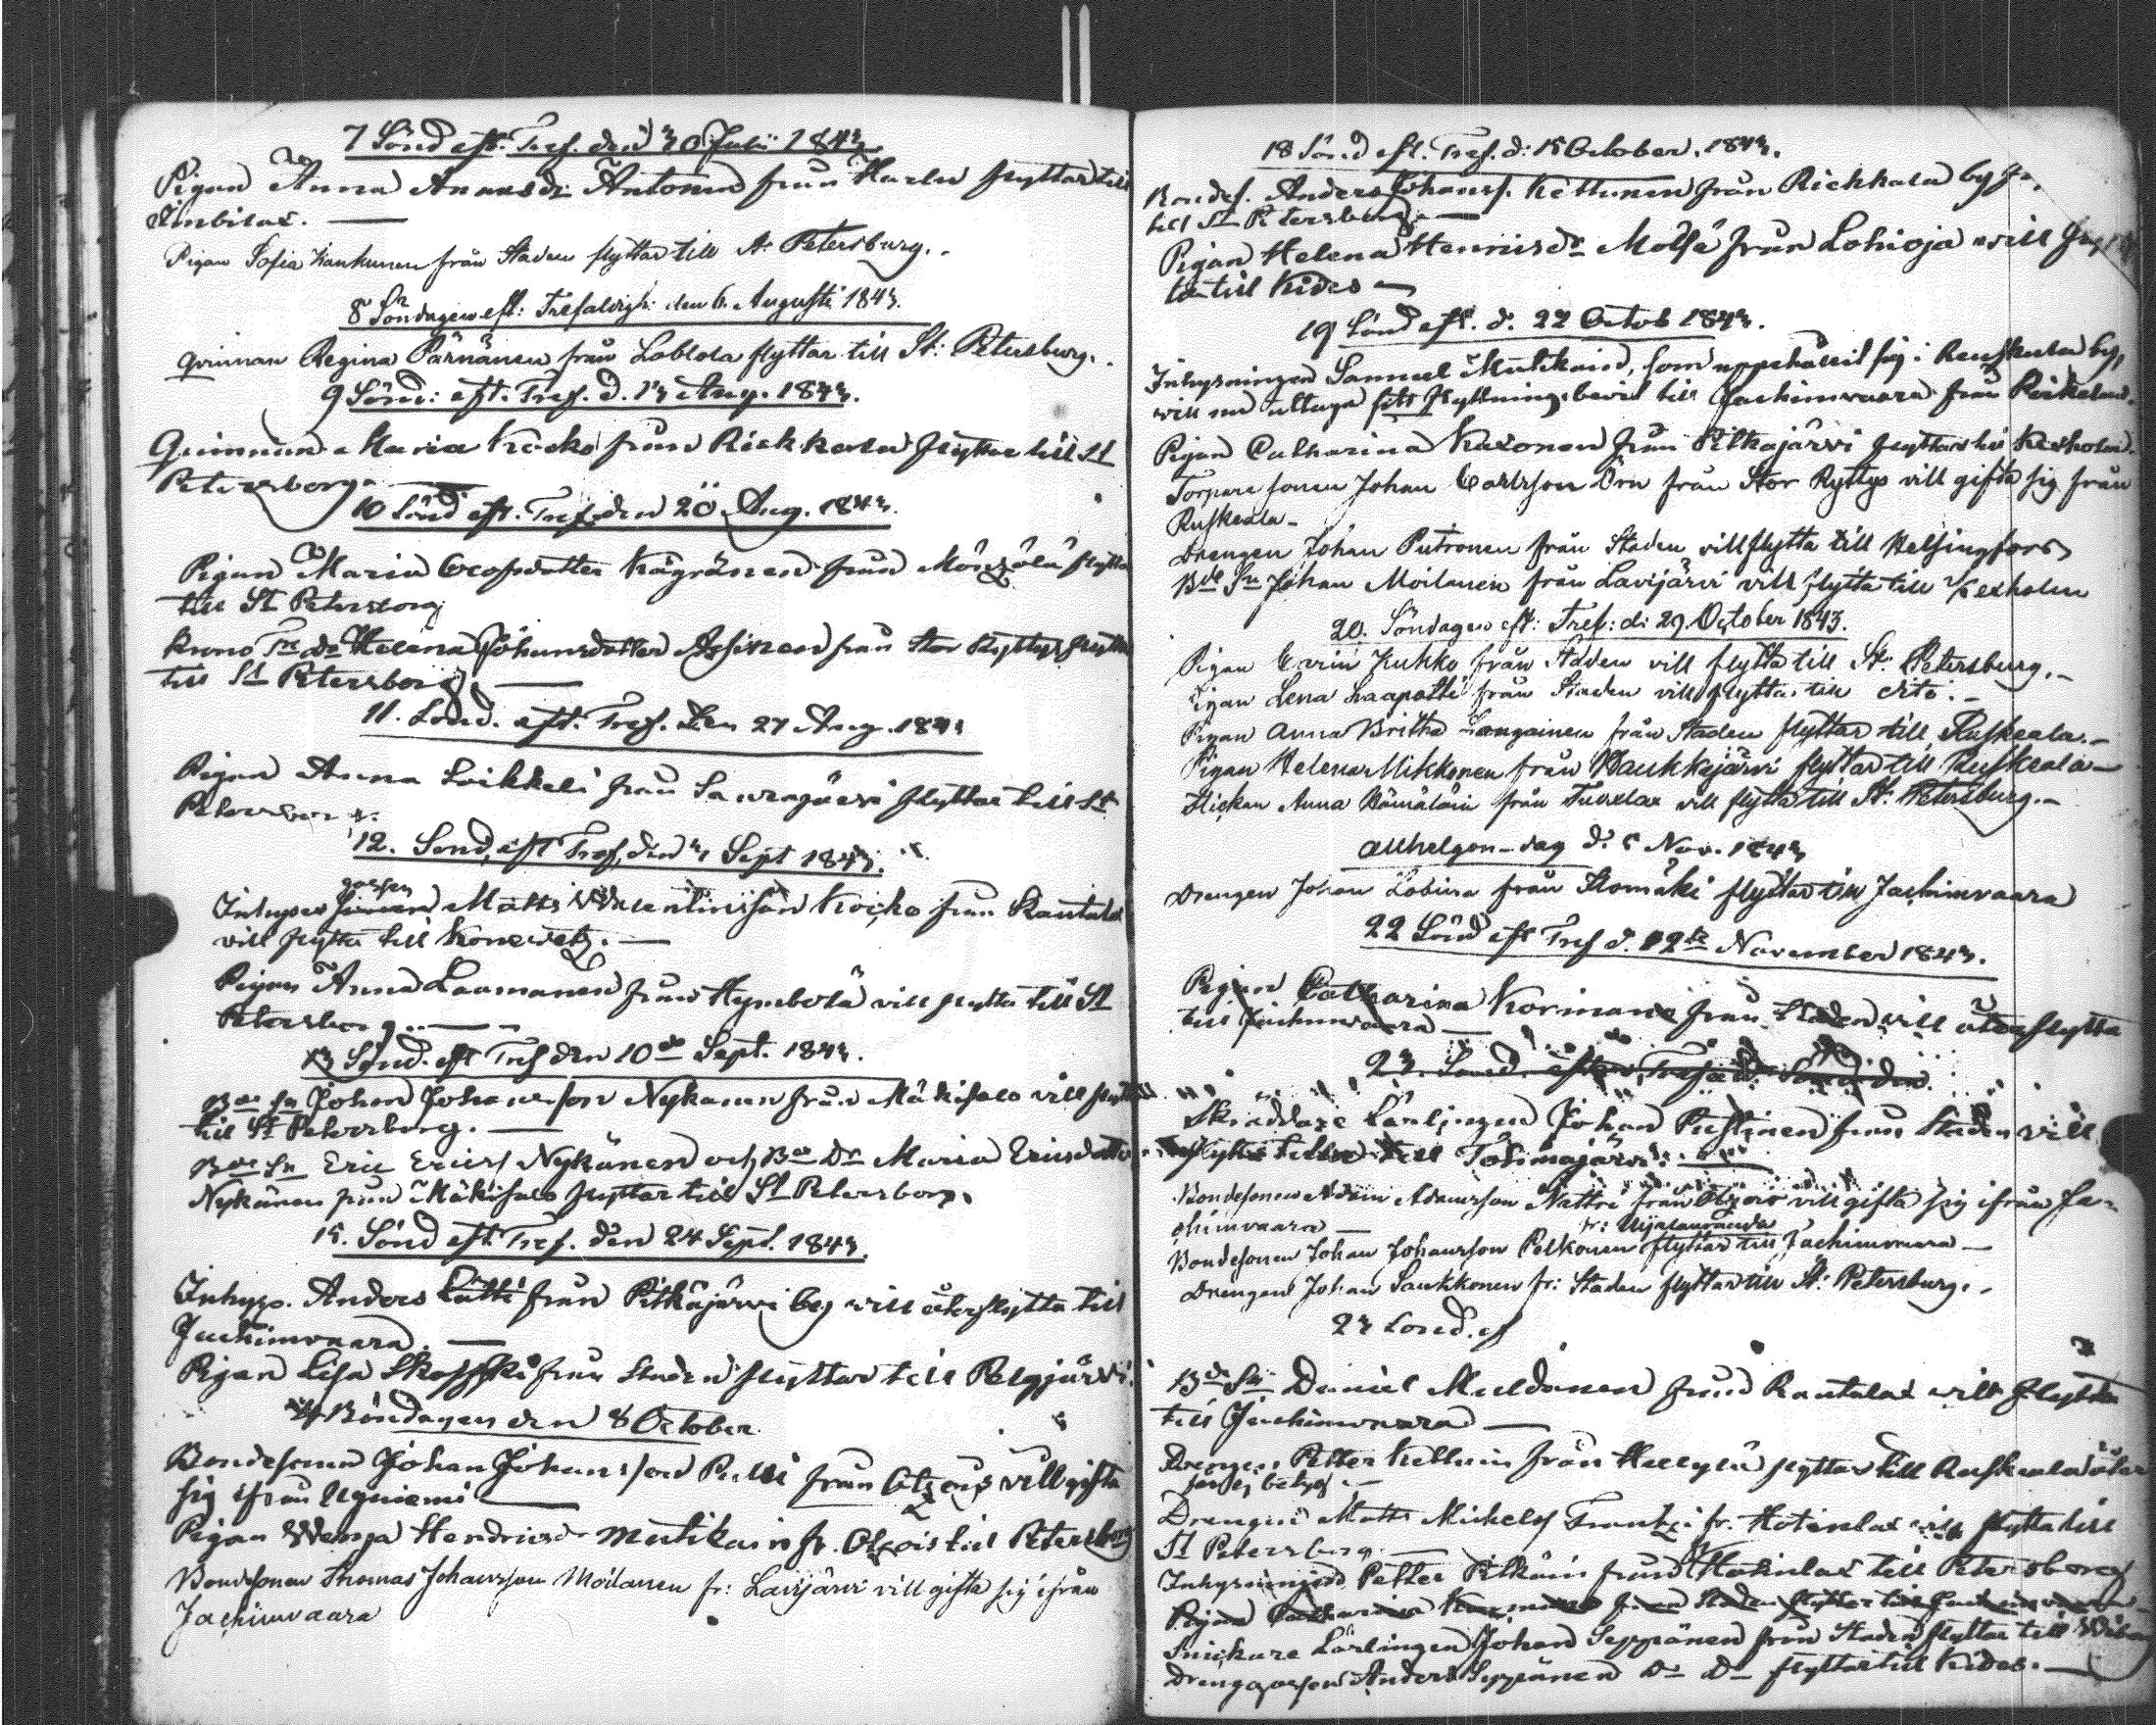 7 Sönd eft. Tref. den 30 Julii 1843.
Pigan Anna Andersdr Antonen från Harlu flyttar till
Imbilax.
Pigan Sofia Kaukunen från Staden flyttar till St Petersburg.
8 Söndagen eft: Trefaldigh: den 6. Augusti 1843.
Qvinnan Regina Pärnänen från flyttar till St: Petersburg.
9 Sönd: eft. Tref. d. 13 Aug. 1843.
Quinnan Maria Kocko från Riekkala flyttar till St
Petersborg.
10 Sönd eft. Tref. den 20 Aug. 1843.
Pigan Maria från flytta
till St Petersborg
Helena Johansdotter från Stor Ryttys flytta
till St Petersborg.
11. Sönd. eft. Tref. den 27 Aug. 1843
Pigan Anna Loikkeli från flyttar till St
Petersborg.
12. Sönd. eft Tref. den 3 Sept 1843.
Inhyses gossen Matts Valentinsson Kocko från Rautala
vill flytta till Konewetz.
Pigan Anna Laamanen från Hympölä vill flytta till St
Petersborg.
13 Sönd. eft Tref den 10de Sept. 1843.
Bde Sn Johan Johansson Nykänen från Mäkisalo vill flytta
till St Petersborg.
Bde Sn Eric Ericss Nykänen och Bde Dr Maria Ericsdotter
Nykänen från Mäkisalo flyttar till St Petersborg.
15. Sönd eft Tref. den 24 Sept. 1843.
Inhys. Anders Lätti från Pitkäjärvi by vill återflytta till
Jachimvaara.
Pigan Lisa från Staden flyttar till Pelgjärvi.
Böndagen den 8 October
Bondesonen Johan Johansson Pulli från Otsois vill gifta
sig ifrån Uguniemi
Pigan Wenja Hendricsdr Mutikain fr. Otsois till Petersborg
Bondesonen Thomas Johansson Moilanen fr: Lavijärvi vill gifta sig ifrån
Jachimvaara
18 Sönd eft. Tref. d: 15 October. 1843.
Bondes. Anders Johanss. Kettunen från Riekkala by
till St Petersburg.
Pigan Helena Henricsdr Mölsä från Lohioja vill flyt
ta till Kides
19 Sönd eft. d. 22 Octob 1843.
Inhysningen Samuel Mutikain, som uppehållit sig i Reuskula by,
vill nu uttaga sitt flyttningsbevis till Jachimvaara från
Pigan Catharina Kaxonen från Pitkäjärvi flyttar till Kexholm.
Torpare sonen Johan Carlsson Örn från Stor Ryttys vill gifta sig från
Ruskeala
Drengen Johan Putronen från Staden vill flytta till Helsingfors
Bde Sn Johan Moilanen från Lavijärvi vill flytta till Kexholm
20. Söndagen eft: Tref: d: 29. October 1843.
Pigan Evrin Kukko från Staden vill flytta till St. Petersburg.
Pigan Lena från Staden vill flytta till
Pigan Anna Britha från Staden flyttar till Ruskeala.
Pigan Helena Mikkonen från Haukkajärvi flyttar till Ruskeala
Flickan Anna Hämäläin från Tuoxlax vill flytta till St. Petersburg.
Allhelgon-dag d. 5 Nov. 1843
Drengen Johan från flyttar till Jachimvaara
22 Sönd eft Tref d. 12te November 1843.
Pigan Catharina Kormano från Staden vill återflytta
till Jachimvaara
23. Sönd. efter Trefald. Sönd. den
Skräddare Lärlingen Johan från Staden vill
flytta till Tohmajärvi.
Bondesonen Adam Adamsson Nattri från Otsois vill gifta sig ifrån Ja-
chimvaara
Bondesonen Johan Johansson Pelkonen flyttar till Jachimvaara
Drengen Johan Saukkonen fr: Staden flyttar till St: Petersburg.
23 Sönd. ef
Bde Sn Daniel Muldonen från Rautalax vill flytta
till Jachimvaara
Drengen Petter Kettuin från Helylä flyttar till Ruskeala
Drengen Matts Michelss fr. Hotinlax vill flytta till
St Petersborg.
Inhysningen Petter Pitkäin från Hotinlax till Petersborg
Pigan Catharina Kormano från Staden flyttar till Jachimvaara
Snickare Lärlingen Johan Seppänen från Staden flyttar till
Drenggossen Anders Seppänen Do Do flyttar till Kides.